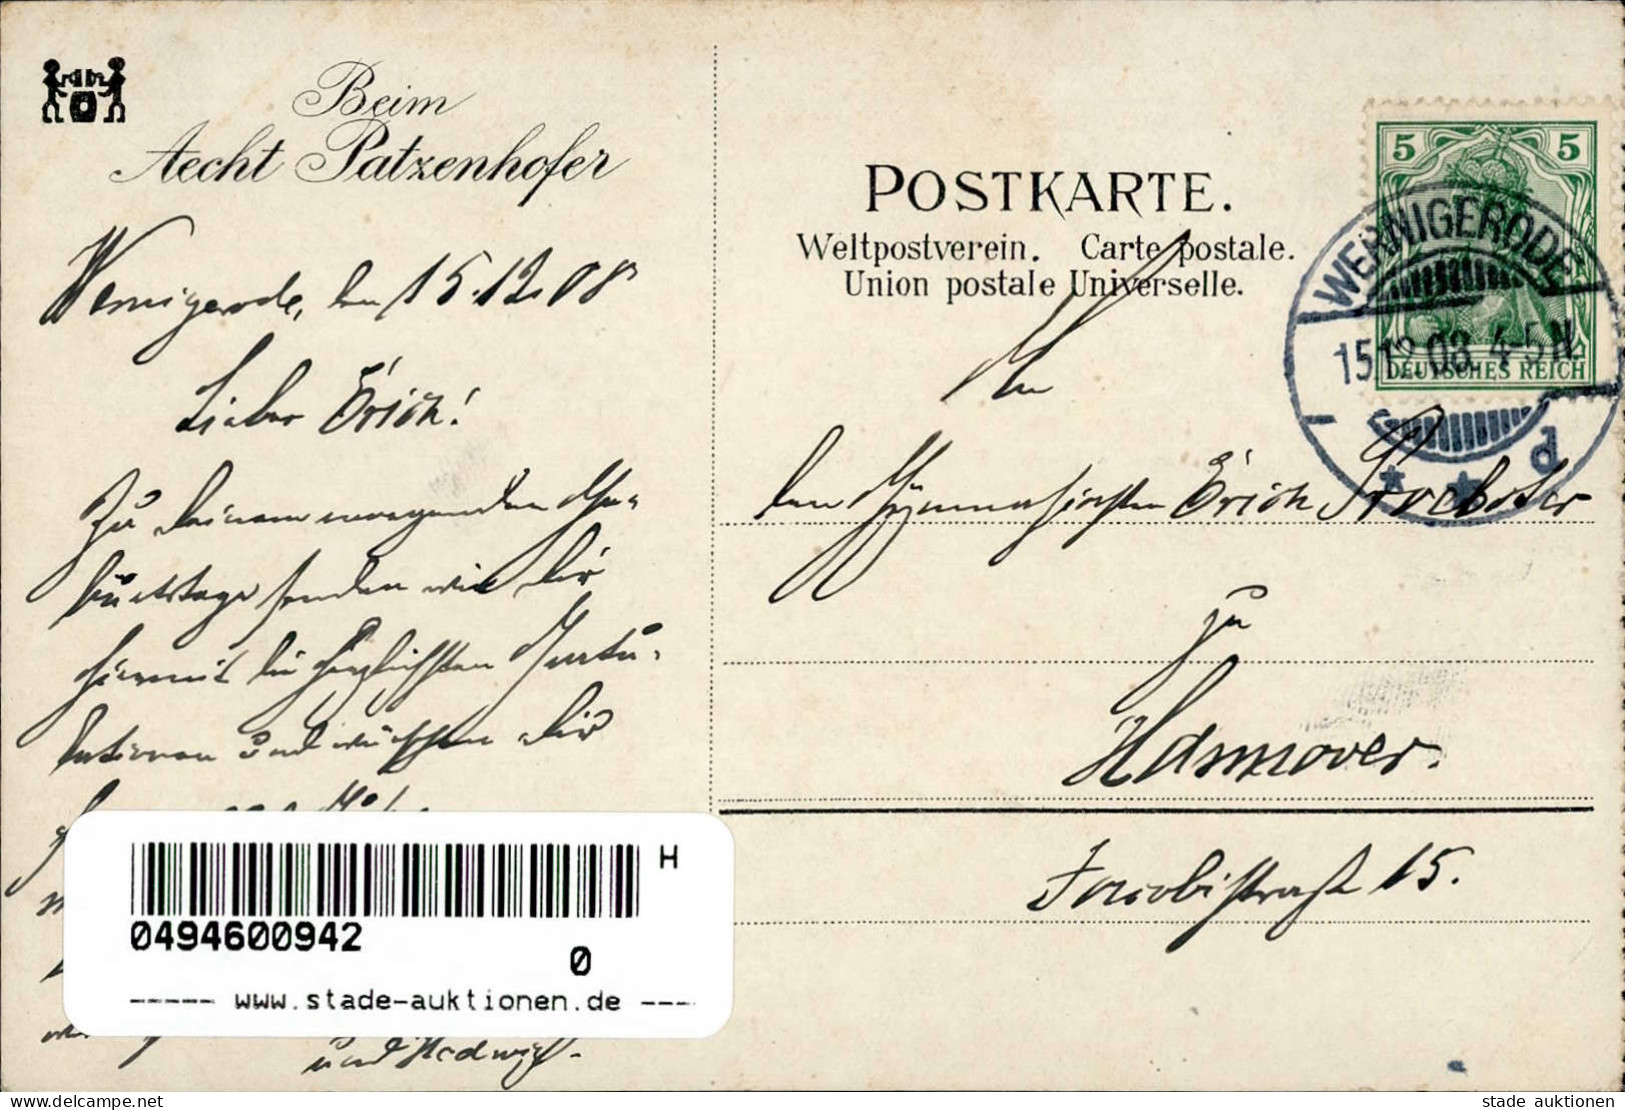 Beim
Aecht Patzenhofer
Wernigerode, den 15.12.08
Lieber Erich!
Zu Deinem morgenden Ge-
burtstage senden wir Dir
hiermit die herzlichsten Gratu-
lationen und wünschen Dir
und Hedwig.
0494600942
H
0
----- www.stade-auktionen.de ----
POSTKARTE.
Weltpostverein. Carte postale.
Union postale Universelle.
5 5
DEUTSCHES REICH
WERNIGERODE
15.12.08. 4-5 N
* * d
An
den Gymnasiasten Erich
zu
Hannover.
Jacobistraße 15.
© akpool.de
stade auktionen